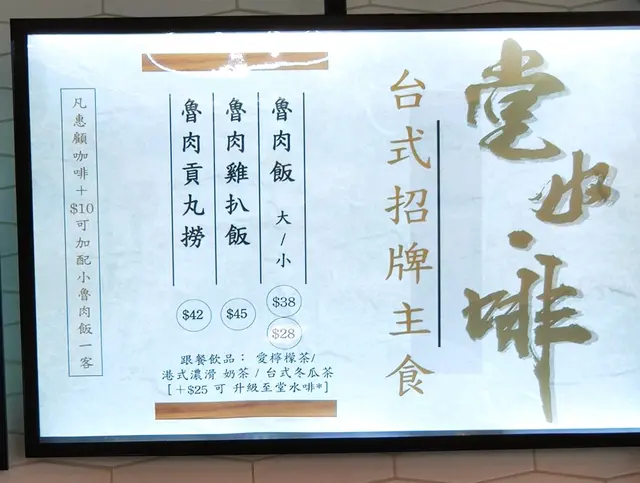 堂水啡
台式招牌主食
魯肉飯 大/小
$38
$28
魯肉雞扒飯
$45
魯肉貢丸撈
$42
跟餐飲品： 愛檸檬茶/
港式濃滑 奶茶 / 台式冬瓜茶
[ +$25 可 升級至堂水啡* ]
凡惠顧咖啡+$10可加配小魯肉飯一客